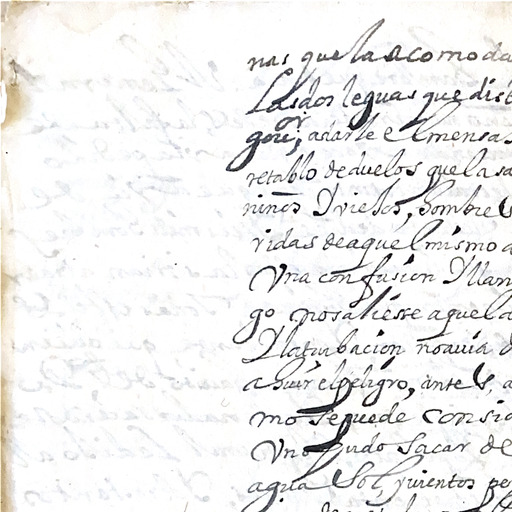 nas que la acomoda
Las dos leguas que dist
gori, a darle el mensa
retablo de duelos que la sa
niños Y viejos, hombres
ridas de aquel mismo a
Una confusion Y llan
go no saliesse aquel a
Y la turbacion no avia
a huir el peligro, antes, a
mo se puede consid
Uno pudo sacar de
agua Sol, y vientos pe